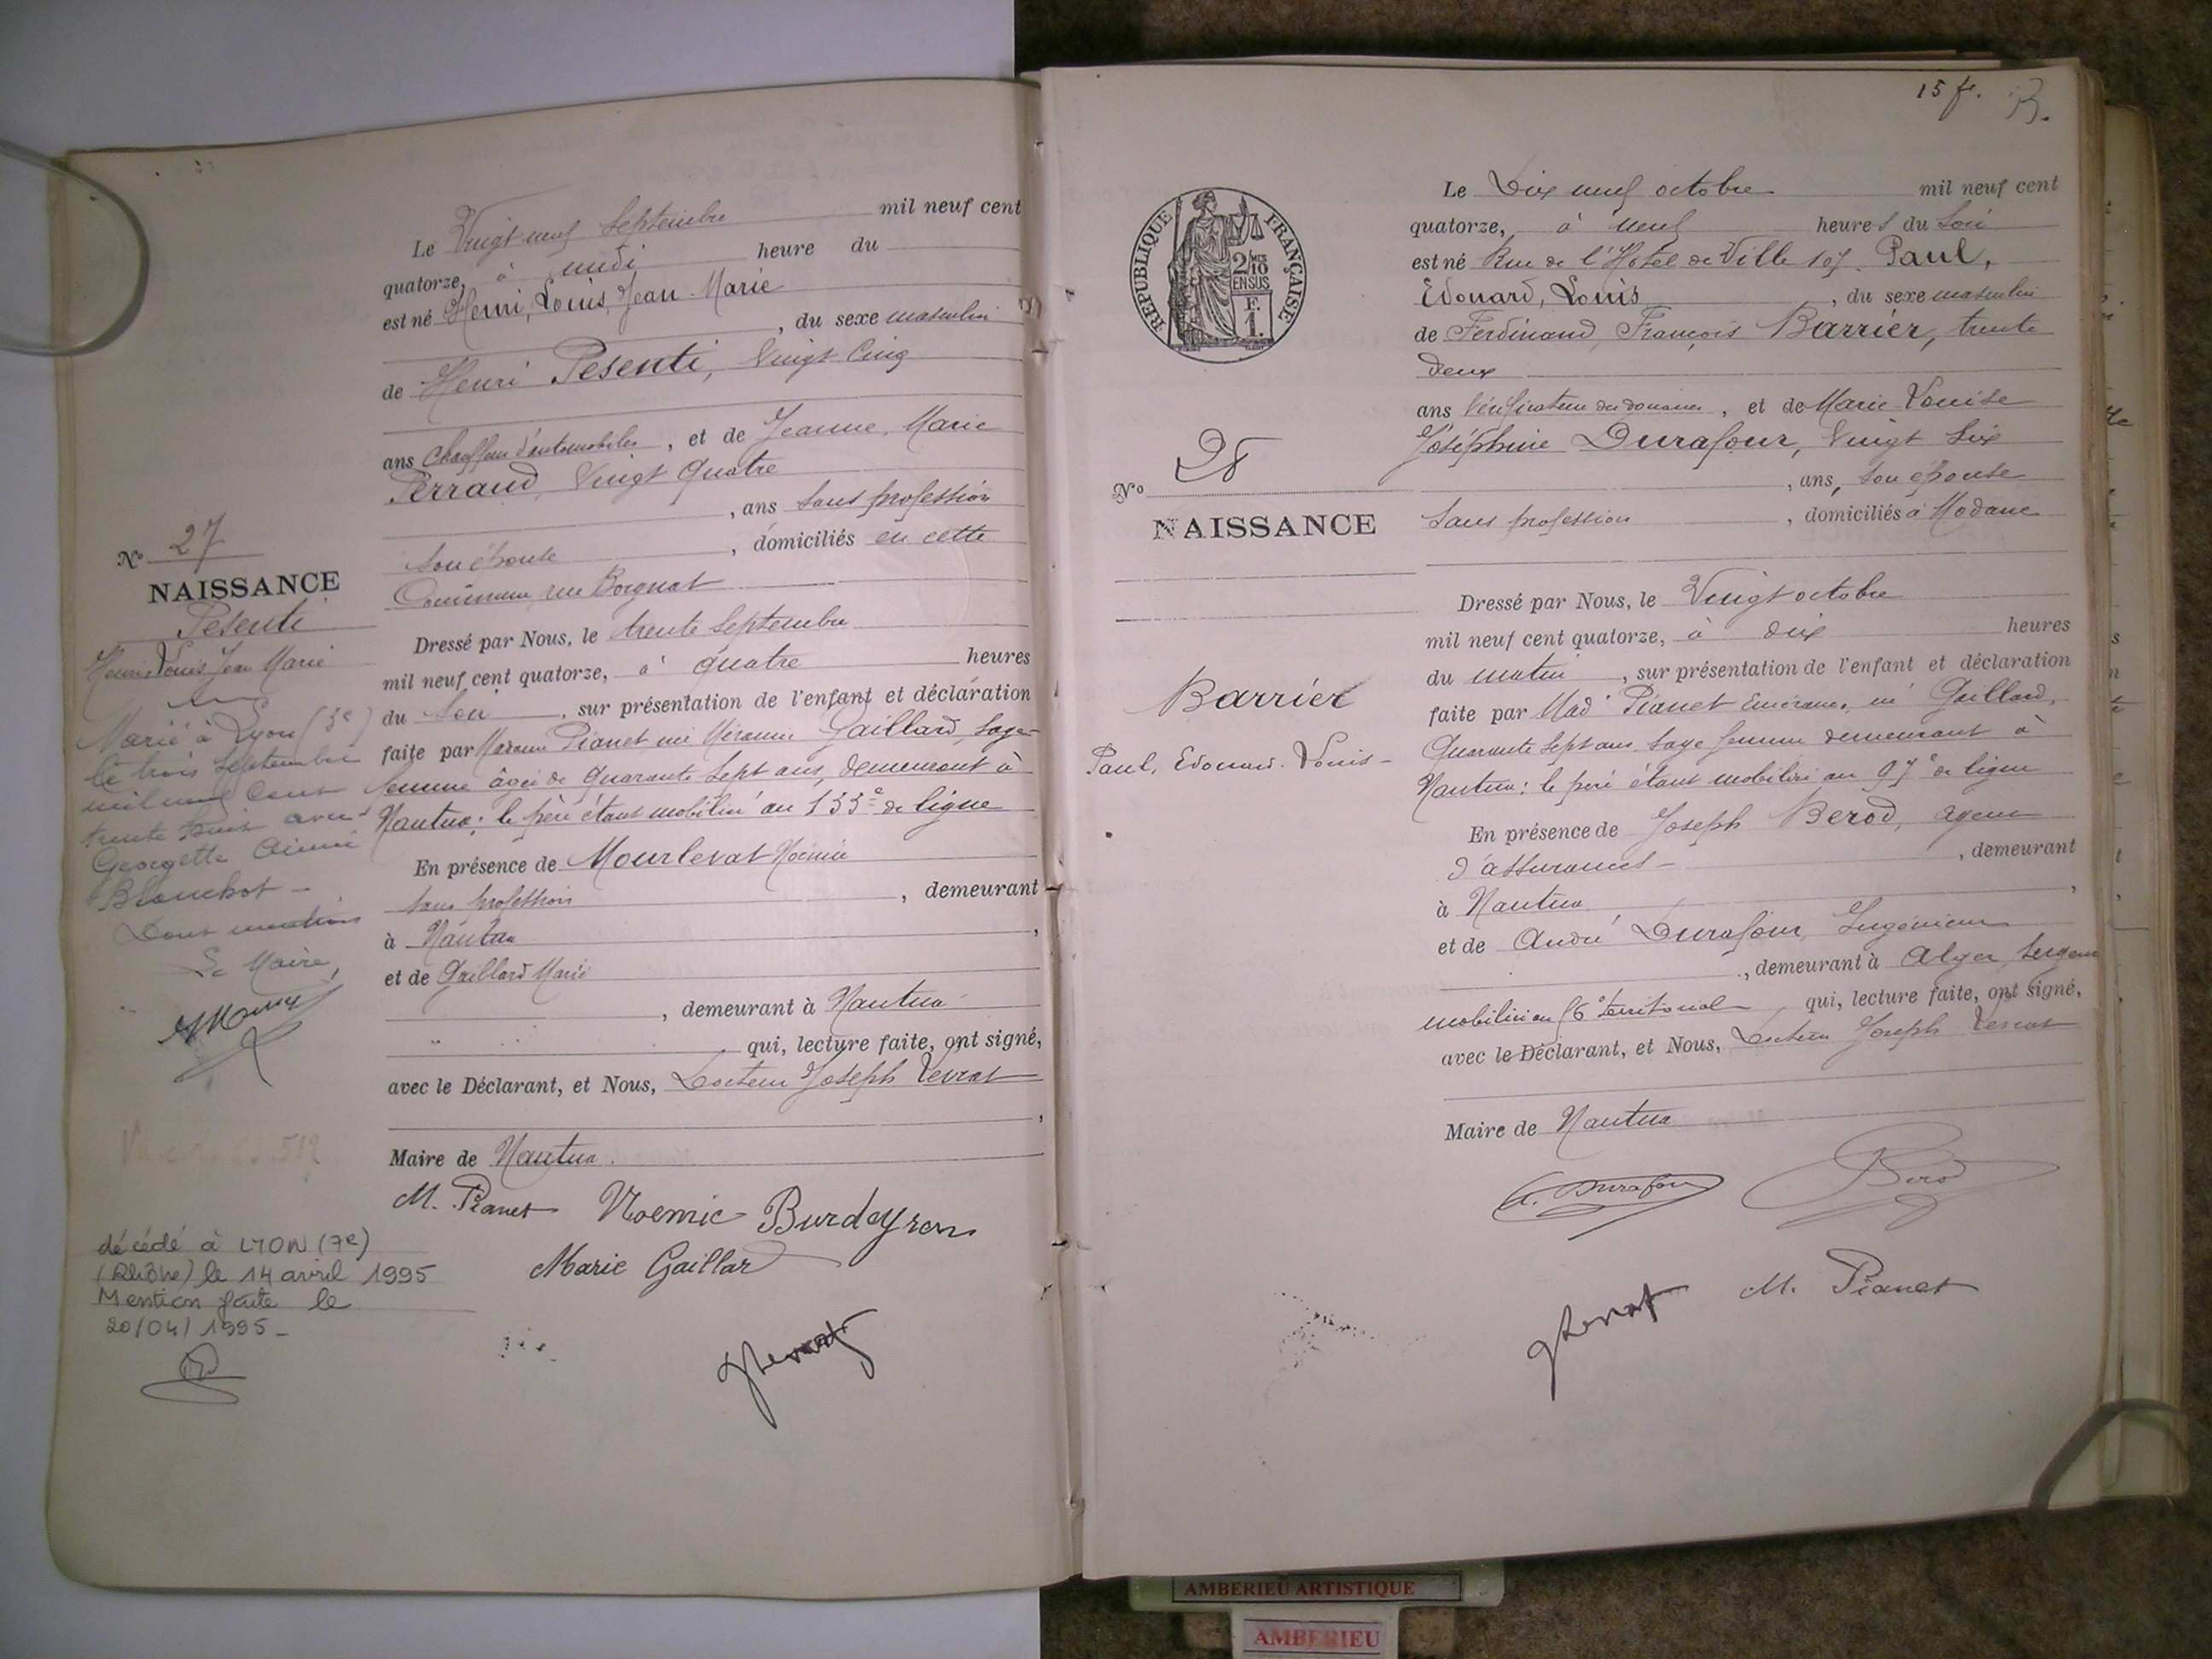 Le Vingt neuf Septembre mil neuf cent
quatorze, à midi heure du
est né Henri, Louis, Jean-Marie
, du sexe masculin
de Henri Pesenti, Vingt Cinq
ans Chauffeur d'automobiles, et de Jeanne, Marie
Perraud, Vingt quatre
, ans sans profession
son épouse, domiciliés en cette
Commune, rue Borgnat
Dressé par Nous, le trente Septembre
mil neuf cent quatorze, à quatre heures
du Soir, sur présentation de l'enfant et déclaration
faite par Madame Pianet née Gaillard, sage-
femme âgée de quarante sept ans, demeurant à
Nantua; le père étant mobilisé au 133e de ligne
En présence de Mourlevat Noémie
sans profession, demeurant
à Nantua,
et de Gaillard Marie
, demeurant à Nantua
qui, lecture faite, ont signé,
avec le Déclarant, et Nous, Docteur Joseph Levrat
,
Maire de Nantua.
M. Pianet Noemie Burdeyron
Marie Gaillard
JLevrat
No 27
NAISSANCE
Pesenti
Henri Louis Jean Marie
Marié à Lyon (3e)
le trois Septembre
mil neuf cent
trente avec
Georgette Aimée
Blanchot -
Dont mention
Le Maire,
décédé à LYON (7e)
(Rhône) le 14 avril 1995
Mention faite le
20/04/1995 -
15 f.
RÉPUBLIQUE FRANÇAISE
2/10
EN SUS
F.
1.
No 28
NAISSANCE
Barrier
Paul, Edouard. Louis -
Le Dix neuf octobre mil neuf cent
quatorze, à neuf heures du Soir
est né Rue de l'Hotel de Ville 107. Paul,
Edouard, Louis, du sexe masculin
de Ferdinand, François Barrier, trente
deux
ans Vérificateur des douanes, et de Marie Louise
Joséphine Durafour, Vingt Six
, ans, son épouse
Sans profession, domiciliés à Modane
Dressé par Nous, le Vingt octobre
mil neuf cent quatorze, à dix heures
du matin, sur présentation de l'enfant et déclaration
faite par Mad Pianet née Gaillard,
Quarante Sept ans, sage femme demeurant à
Nantua; le père étant mobilisé au 97e de ligne
En présence de Joseph Berod, agent
d'assurances -, demeurant
à Nantua,
et de André Durafour, Ingénieur
, demeurant à Alger, Sergent
mobilisé au territorial qui, lecture faite, ont signé,
avec le Déclarant, et Nous, Docteur Joseph Levrat
Maire de Nantua
A. Durafour Berod
JLevrat M. Pianet
AMBERIEU ARTISTIQUE
AMBERIEU